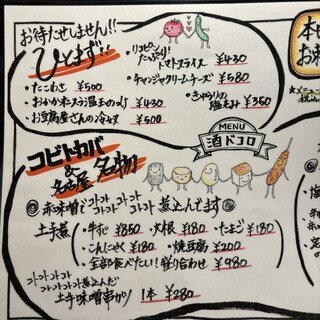 お待たせしません!!
ひとまず!!
・リコピンたっぷり!
トマトスライス ¥430
・チャンジャクリームチーズ ¥580
・きゅうりの塩もみ ¥350
・たこわさ ¥500
・おかか ¥430
・お豆腐屋さんの冷奴 ¥500
MENU
酒ドコロ
コビトカバ
&
名古屋名物
赤味噌でコトコトコトコト煮込んでます
土手煮
・牛すじ ¥850 ・大根 ¥180 ・たまご ¥180
・こんにゃく ¥180 ・焼豆腐 ¥200
・全部食べたい!盛り合わせ ¥980
コトコトコトコト
コトコトコトコト煮込んだ
土手味噌串カツ 1本 ¥280